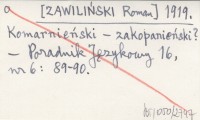 [ZAWILIŃSKI Roman] 1919.
Komarnieński - zakopanieński?
- Poradnik Językowy 16,
nr 6: 89-90.